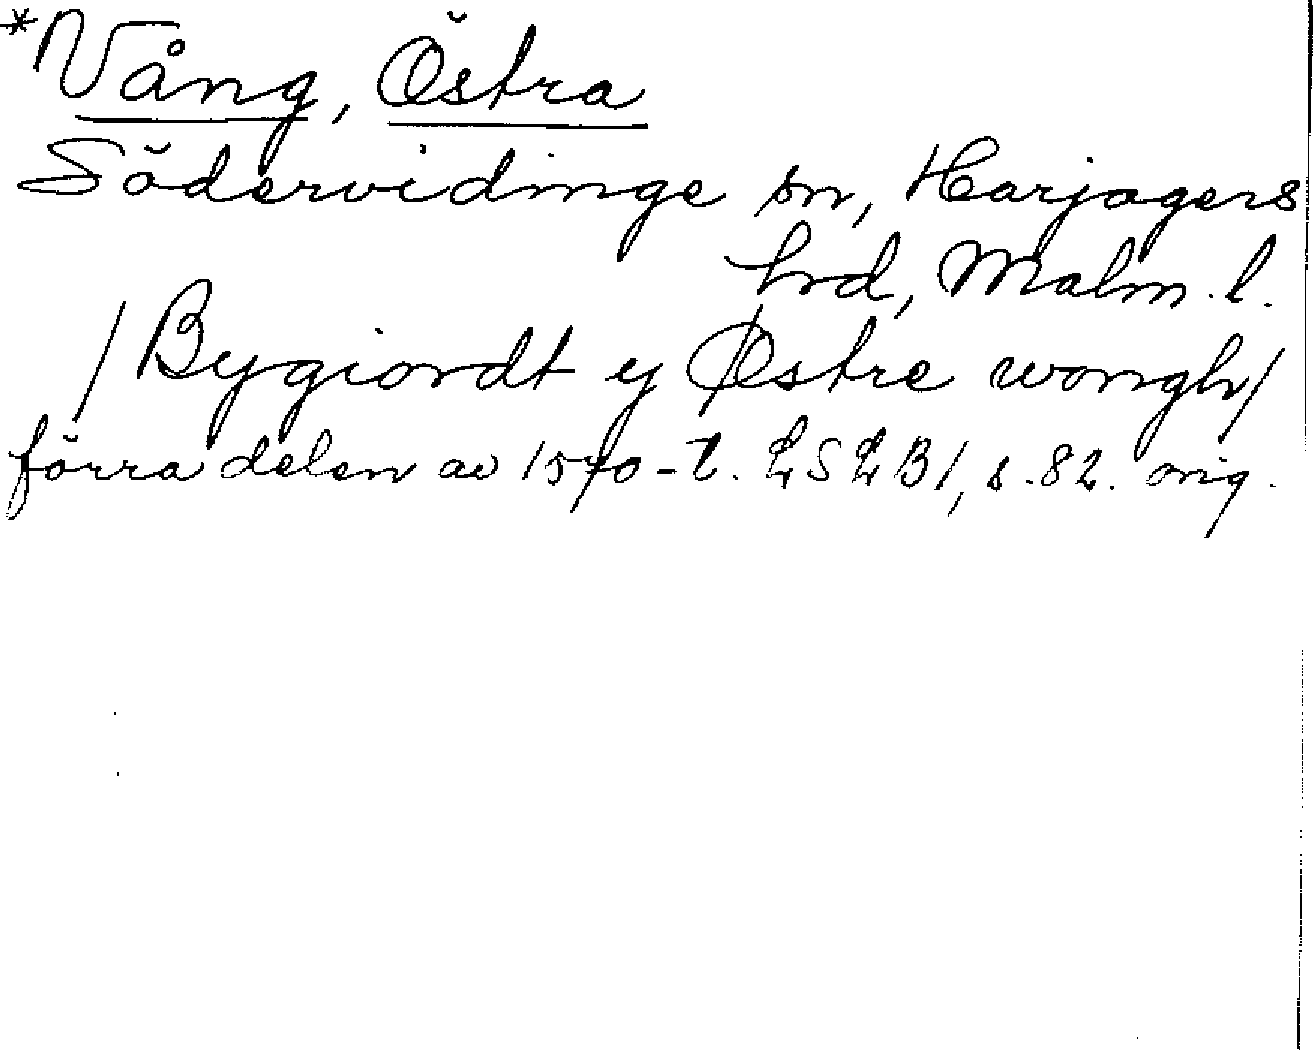 *Vång, Östra
Södervidinge sn, Harjagers
hrd, Malm. l.
/ Bygiordt y Østre wongh/
förra delen av 1570-t. LSLB1, s. 82. orig.